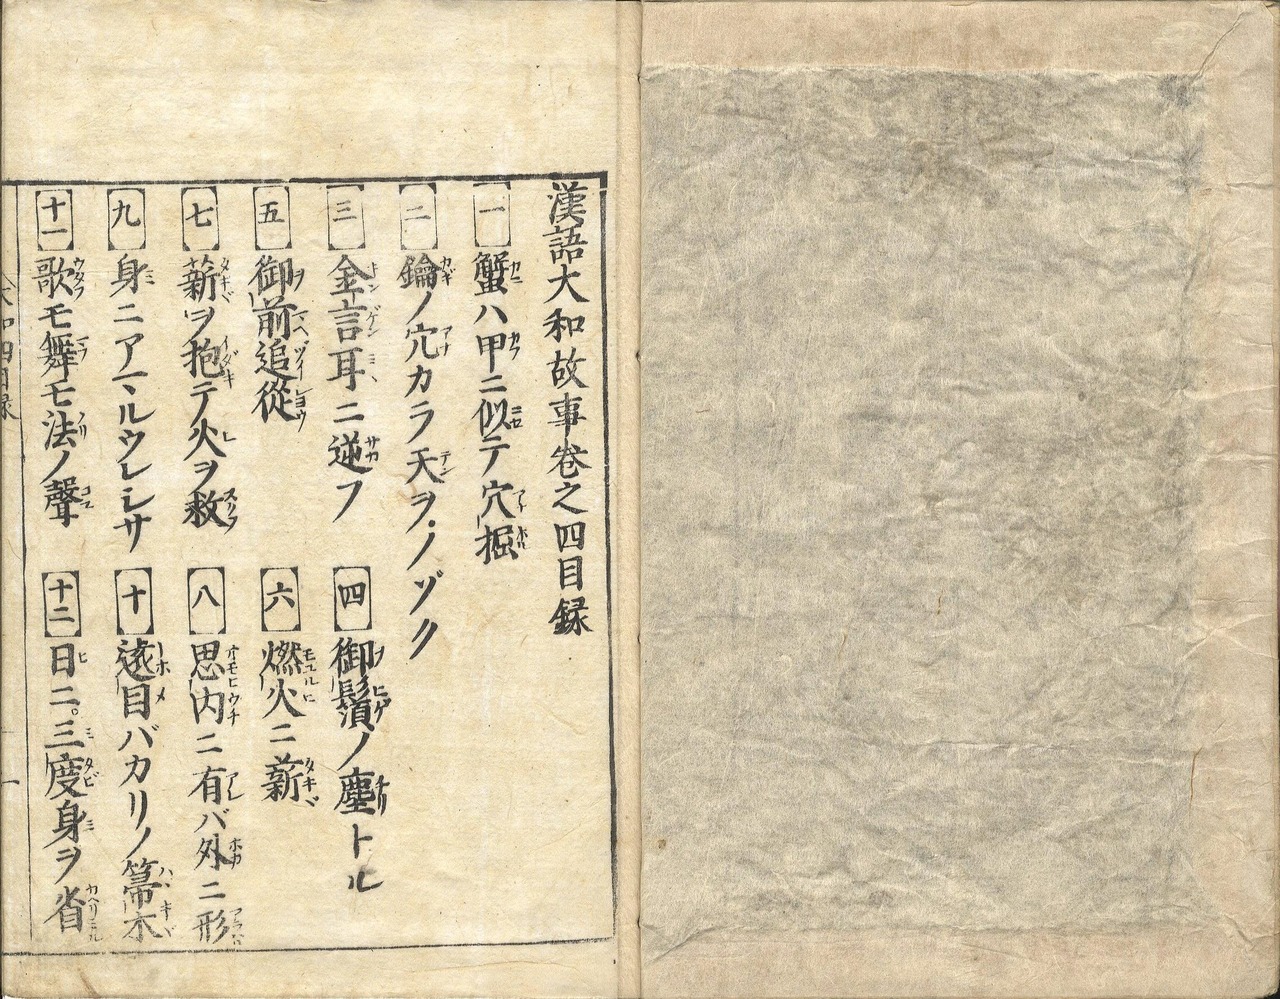 漢語大和故事卷之四目録
一 蟹ハ甲ニ似テ穴掘
二 鑰ノ穴カラ天ヲノゾク
三 金言耳ニ逆フ
四 御鬚ノ塵トル
五 御前追從
六 燃火ニ薪
七 薪ヲ抱テ火ヲ救
八 思内ニ有バ外ニ形
九 身ニアマルウレシサ
十 遠目バカリノ箒木
十一 歌モ舞モ法ノ聲
十二 日ニ。三度身ヲ省
大和四目録 一